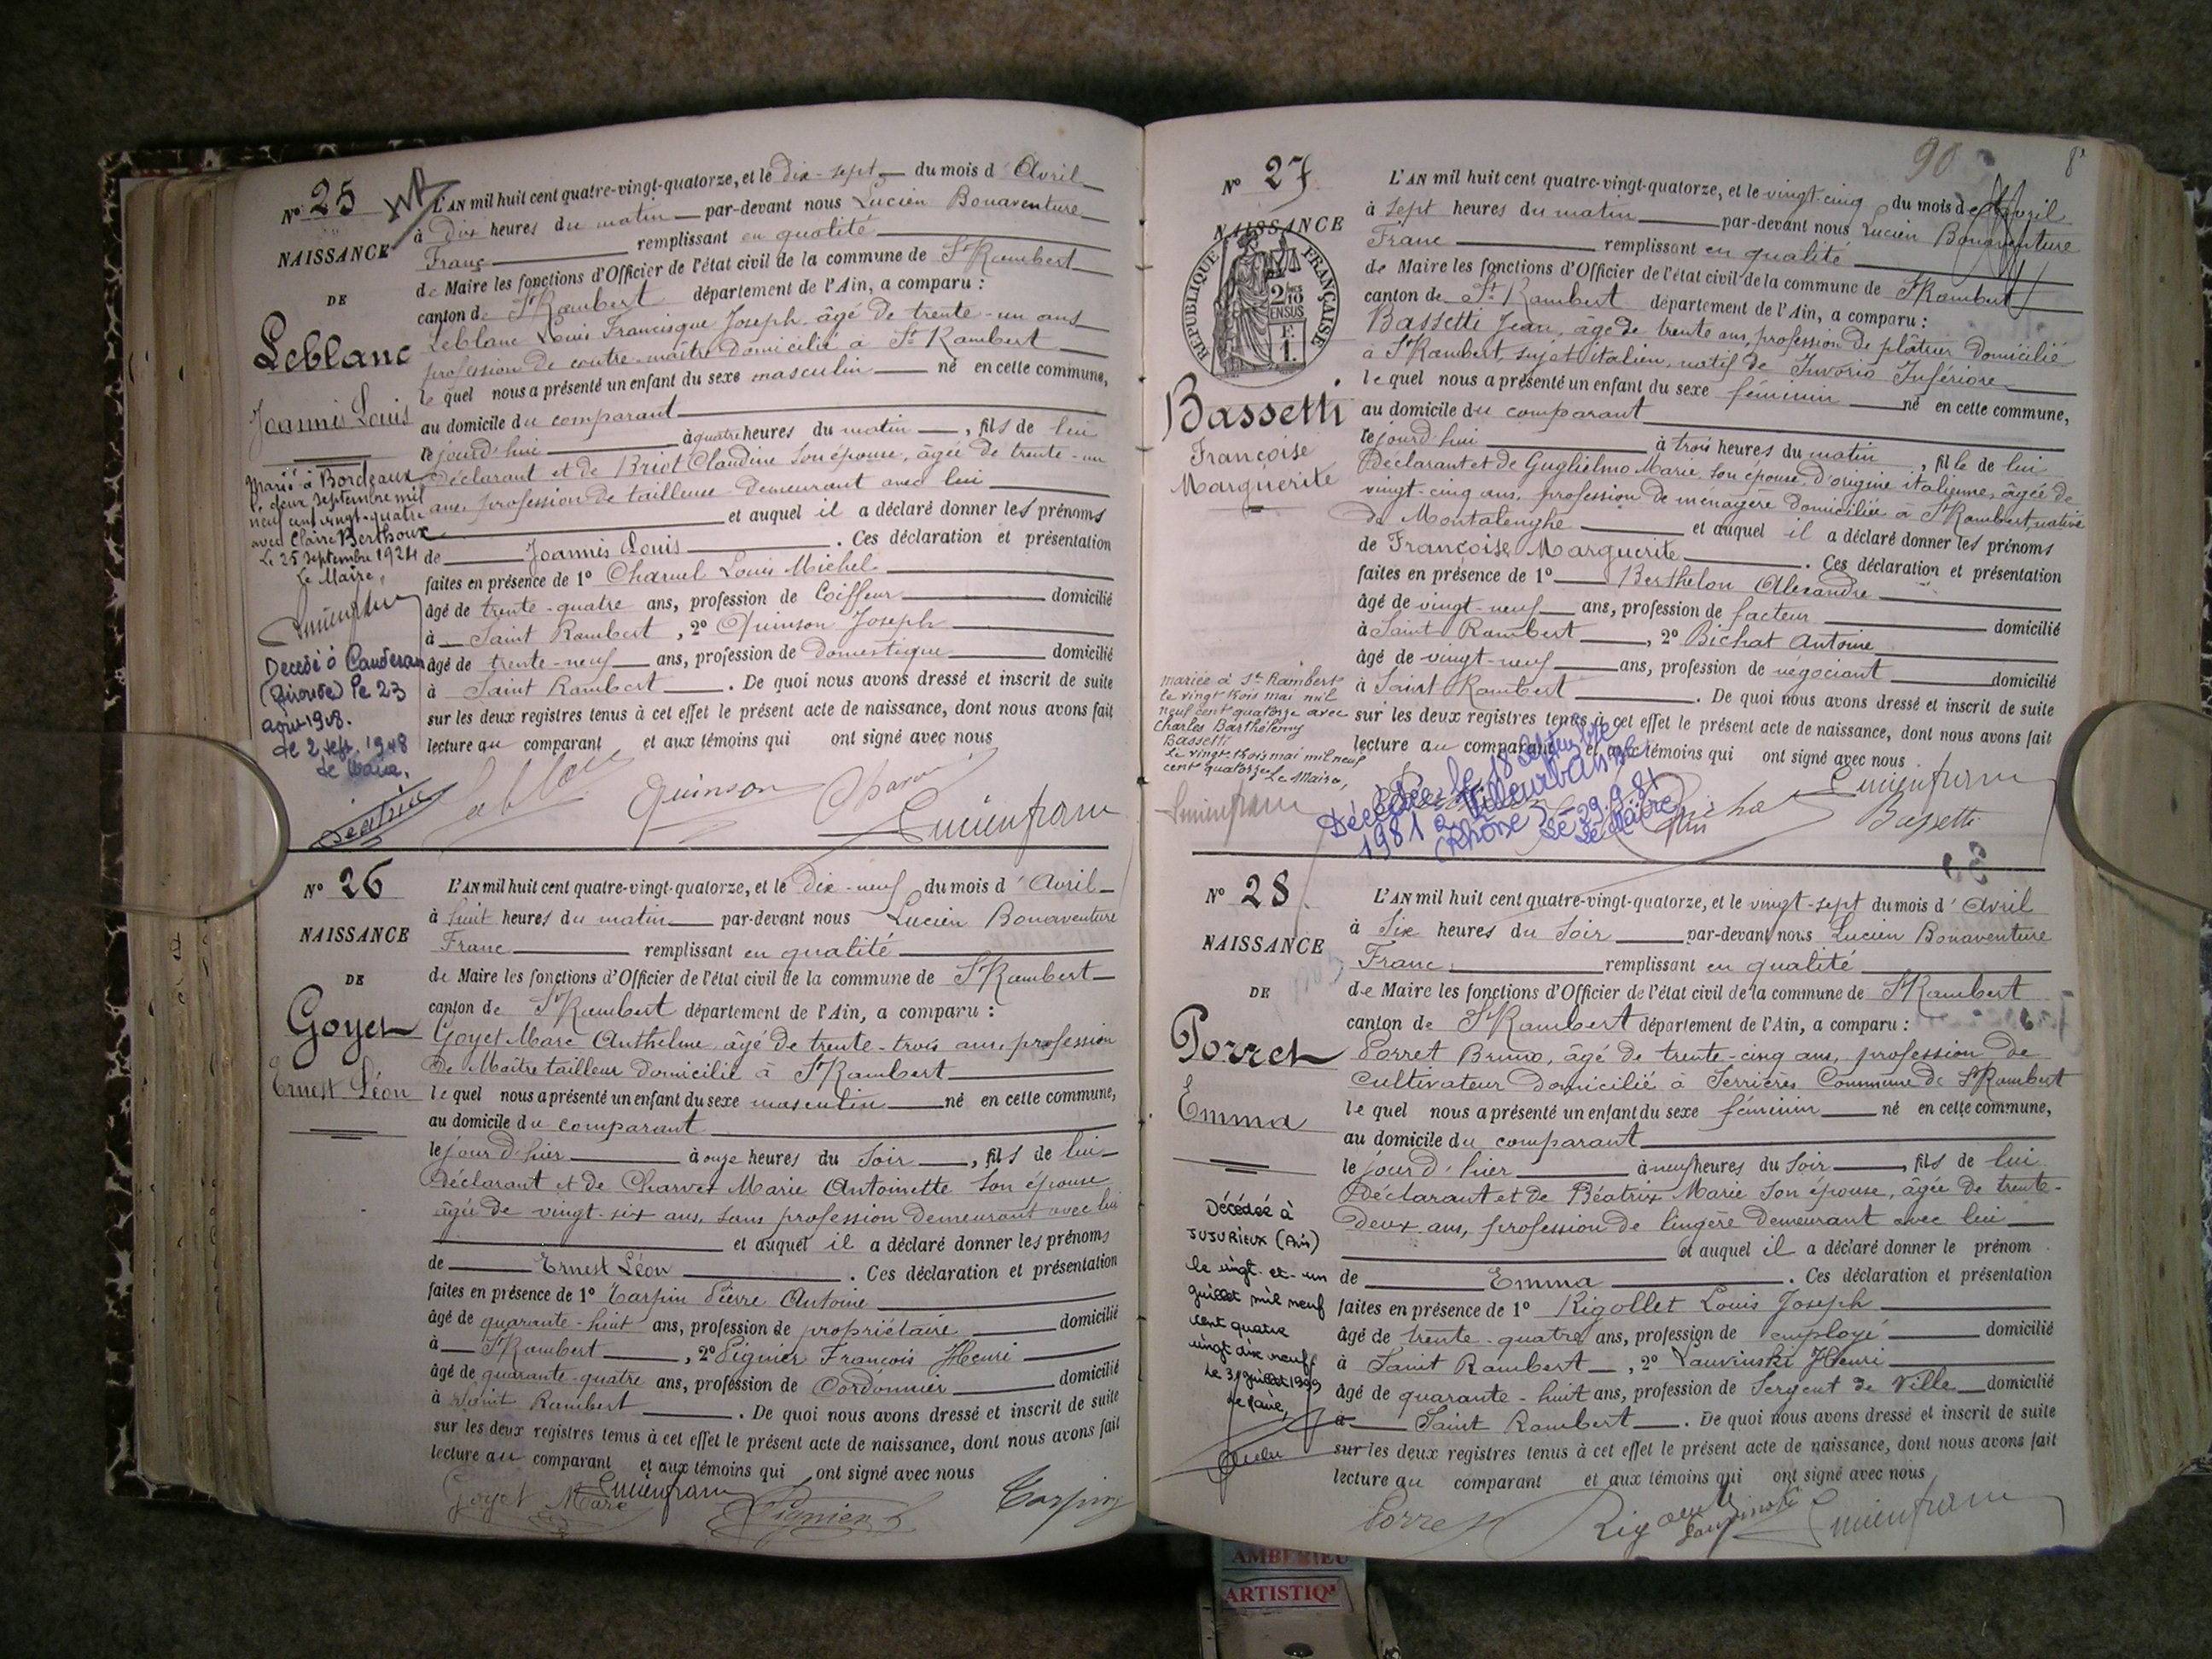 N° 25
NAISSANCE
DE
Leblanc
Joannis Louis
Marié à Bordeaux
le deux Septembre mil
neuf cent vingt-quatre
avec Claire Berthoux
Le 25 Septembre 1924
Le Maire,
Decedé à Cauderan
(Gironde) le 23
Août 1948.
Le 2 Sept. 1948
Le Maire,
L'AN mil huit cent quatre-vingt-quatorze, et le dix-sept du mois d'Avril
à Dix heures du matin par-devant nous Lucien Bonaventure
Franc remplissant en qualité
de Maire les fonctions d'Officier de l'état civil de la commune de St Rambert
canton de St Rambert département de l'Ain, a comparu :
Leblanc Louis Francisque Joseph âgé de trente-un ans
profession de contre-maître domicilié à St Rambert
le quel nous a présenté un enfant du sexe masculin né en cette commune,
au domicile du comparant
le jourd'hui à quatre heures du matin, fils de lui
Déclarant et de Briot Claudine son épouse, âgée de trente-un
ans, profession de tailleuse demeurant avec lui
et auquel il a déclaré donner les prénoms
de Joannis Louis. Ces déclaration et présentation
faites en présence de 1° Charvel Louis Michel
âgé de trente-quatre ans, profession de Coiffeur domicilié
à Saint Rambert, 2° Quinson Joseph
âgé de trente-neuf ans, profession de Domestique domicilié
à Saint Rambert. De quoi nous avons dressé et inscrit de suite
sur les deux registres tenus à cet effet le présent acte de naissance, dont nous avons fait
lecture au comparant et aux témoins qui ont signé avec nous
Quinson
Lucien franc
N° 26
NAISSANCE
DE
Goyet
Ernest Léon
L'AN mil huit cent quatre-vingt-quatorze, et le dix-neuf du mois d'Avril
à huit heures du matin par-devant nous Lucien Bonaventure
Franc remplissant en qualité
de Maire les fonctions d'Officier de l'état civil de la commune de St Rambert
canton de St Rambert département de l'Ain, a comparu :
Goyet Marc Anthelme âgé de trente-trois ans, profession
de Maître tailleur domicilié à St Rambert
le quel nous a présenté un enfant du sexe masculin né en cette commune,
au domicile du comparant
le jour d'hier à onze heures du soir, fils de lui
Déclarant et de Charvet Marie Antoinette son épouse
âgée de vingt-six ans, sans profession demeurant avec lui
et auquel il a déclaré donner les prénoms
de Ernest Léon. Ces déclaration et présentation
faites en présence de 1° Carpin Pierre Antoine
âgé de quarante-huit ans, profession de propriétaire domicilié
à St Rambert, 2° Pignier François Henri
âgé de quarante-quatre ans, profession de Cordonnier domicilié
à Saint Rambert. De quoi nous avons dressé et inscrit de suite
sur les deux registres tenus à cet effet le présent acte de naissance, dont nous avons fait
lecture au comparant et aux témoins qui ont signé avec nous
Goyet Marc Lucien franc Pignier Carpin
90
N° 27
NAISSANCE
RÉPUBLIQUE FRANÇAISE
2/10
EN SUS
F.
1.
Bassetti
Françoise
Marguerite
mariée à St Rambert
le vingt trois mai mil
neuf cent quatorze avec
Charles Barthélemy
Bassetti
Le vingt-trois mai mil neuf
cent quatorze Le Maire,
Lucien franc
L'AN mil huit cent quatre-vingt-quatorze, et le vingt-cinq du mois de Avril
à sept heures du matin par-devant nous Lucien Bonaventure
Franc remplissant en qualité
de Maire les fonctions d'Officier de l'état civil de la commune de St Rambert
canton de St Rambert département de l'Ain, a comparu :
Bassetti Jean, âgé de trente ans, profession de plâtrier domicilié
à St Rambert, sujet italien, natif de Invorio Inferiore
le quel nous a présenté un enfant du sexe féminin né en cette commune,
au domicile du comparant
le jourd'hui à trois heures du matin, fille de lui
Déclarant et de Guglielmo Marie, son épouse, d'origine italienne, âgée de
vingt-cinq ans, profession de ménagère domiciliée à St Rambert, native
de Montalenghe et auquel il a déclaré donner les prénoms
de Françoise Marguerite. Ces déclaration et présentation
faites en présence de 1° Berthelon Alexandre
âgé de vingt-neuf ans, profession de facteur domicilié
à Saint Rambert, 2° Bichat Antoine
âgé de vingt-neuf ans, profession de négociant domicilié
à Saint Rambert. De quoi nous avons dressé et inscrit de suite
sur les deux registres tenus à cet effet le présent acte de naissance, dont nous avons fait
lecture au comparant et aux témoins qui ont signé avec nous
Décédée le 18 Septembre
1981 à Villeurbanne
(Rhône) Le 29.9.81
Le Maire
Lucien franc
Bassetti
N° 28
NAISSANCE
DE
Porret
Emma
Décédée à
JUJURIEUX (Ain)
le vingt-et-un
juillet mil neuf
cent quatre
vingt dix neuf
Le 31 juillet 1999
Le Maire,
L'AN mil huit cent quatre-vingt-quatorze, et le vingt-sept du mois d'Avril
à Six heures du Soir par-devant nous Lucien Bonaventure
Franc remplissant en qualité
de Maire les fonctions d'Officier de l'état civil de la commune de St Rambert
canton de St Rambert département de l'Ain, a comparu :
Porret Bruno, âgé de trente-cinq ans, profession de
Cultivateur domicilié à Serrières Commune de St Rambert
le quel nous a présenté un enfant du sexe féminin né en cette commune,
au domicile du comparant
le jour d'hier à neuf heures du Soir, fils de lui
Déclarant et de Béatrix Marie son épouse, âgée de trente-
deux ans, profession de lingère demeurant avec lui
et auquel il a déclaré donner le prénom
de Emma. Ces déclaration et présentation
faites en présence de 1° Rigollet Louis Joseph
âgé de trente-quatre ans, profession de employé domicilié
à Saint Rambert, 2° Lauvinski Henri
âgé de quarante-huit ans, profession de Sergent de Ville domicilié
à Saint Rambert. De quoi nous avons dressé et inscrit de suite
sur les deux registres tenus à cet effet le présent acte de naissance, dont nous avons fait
lecture au comparant et aux témoins qui ont signé avec nous
Porret Lucien franc
AMBERIEU
ARTISTIQ